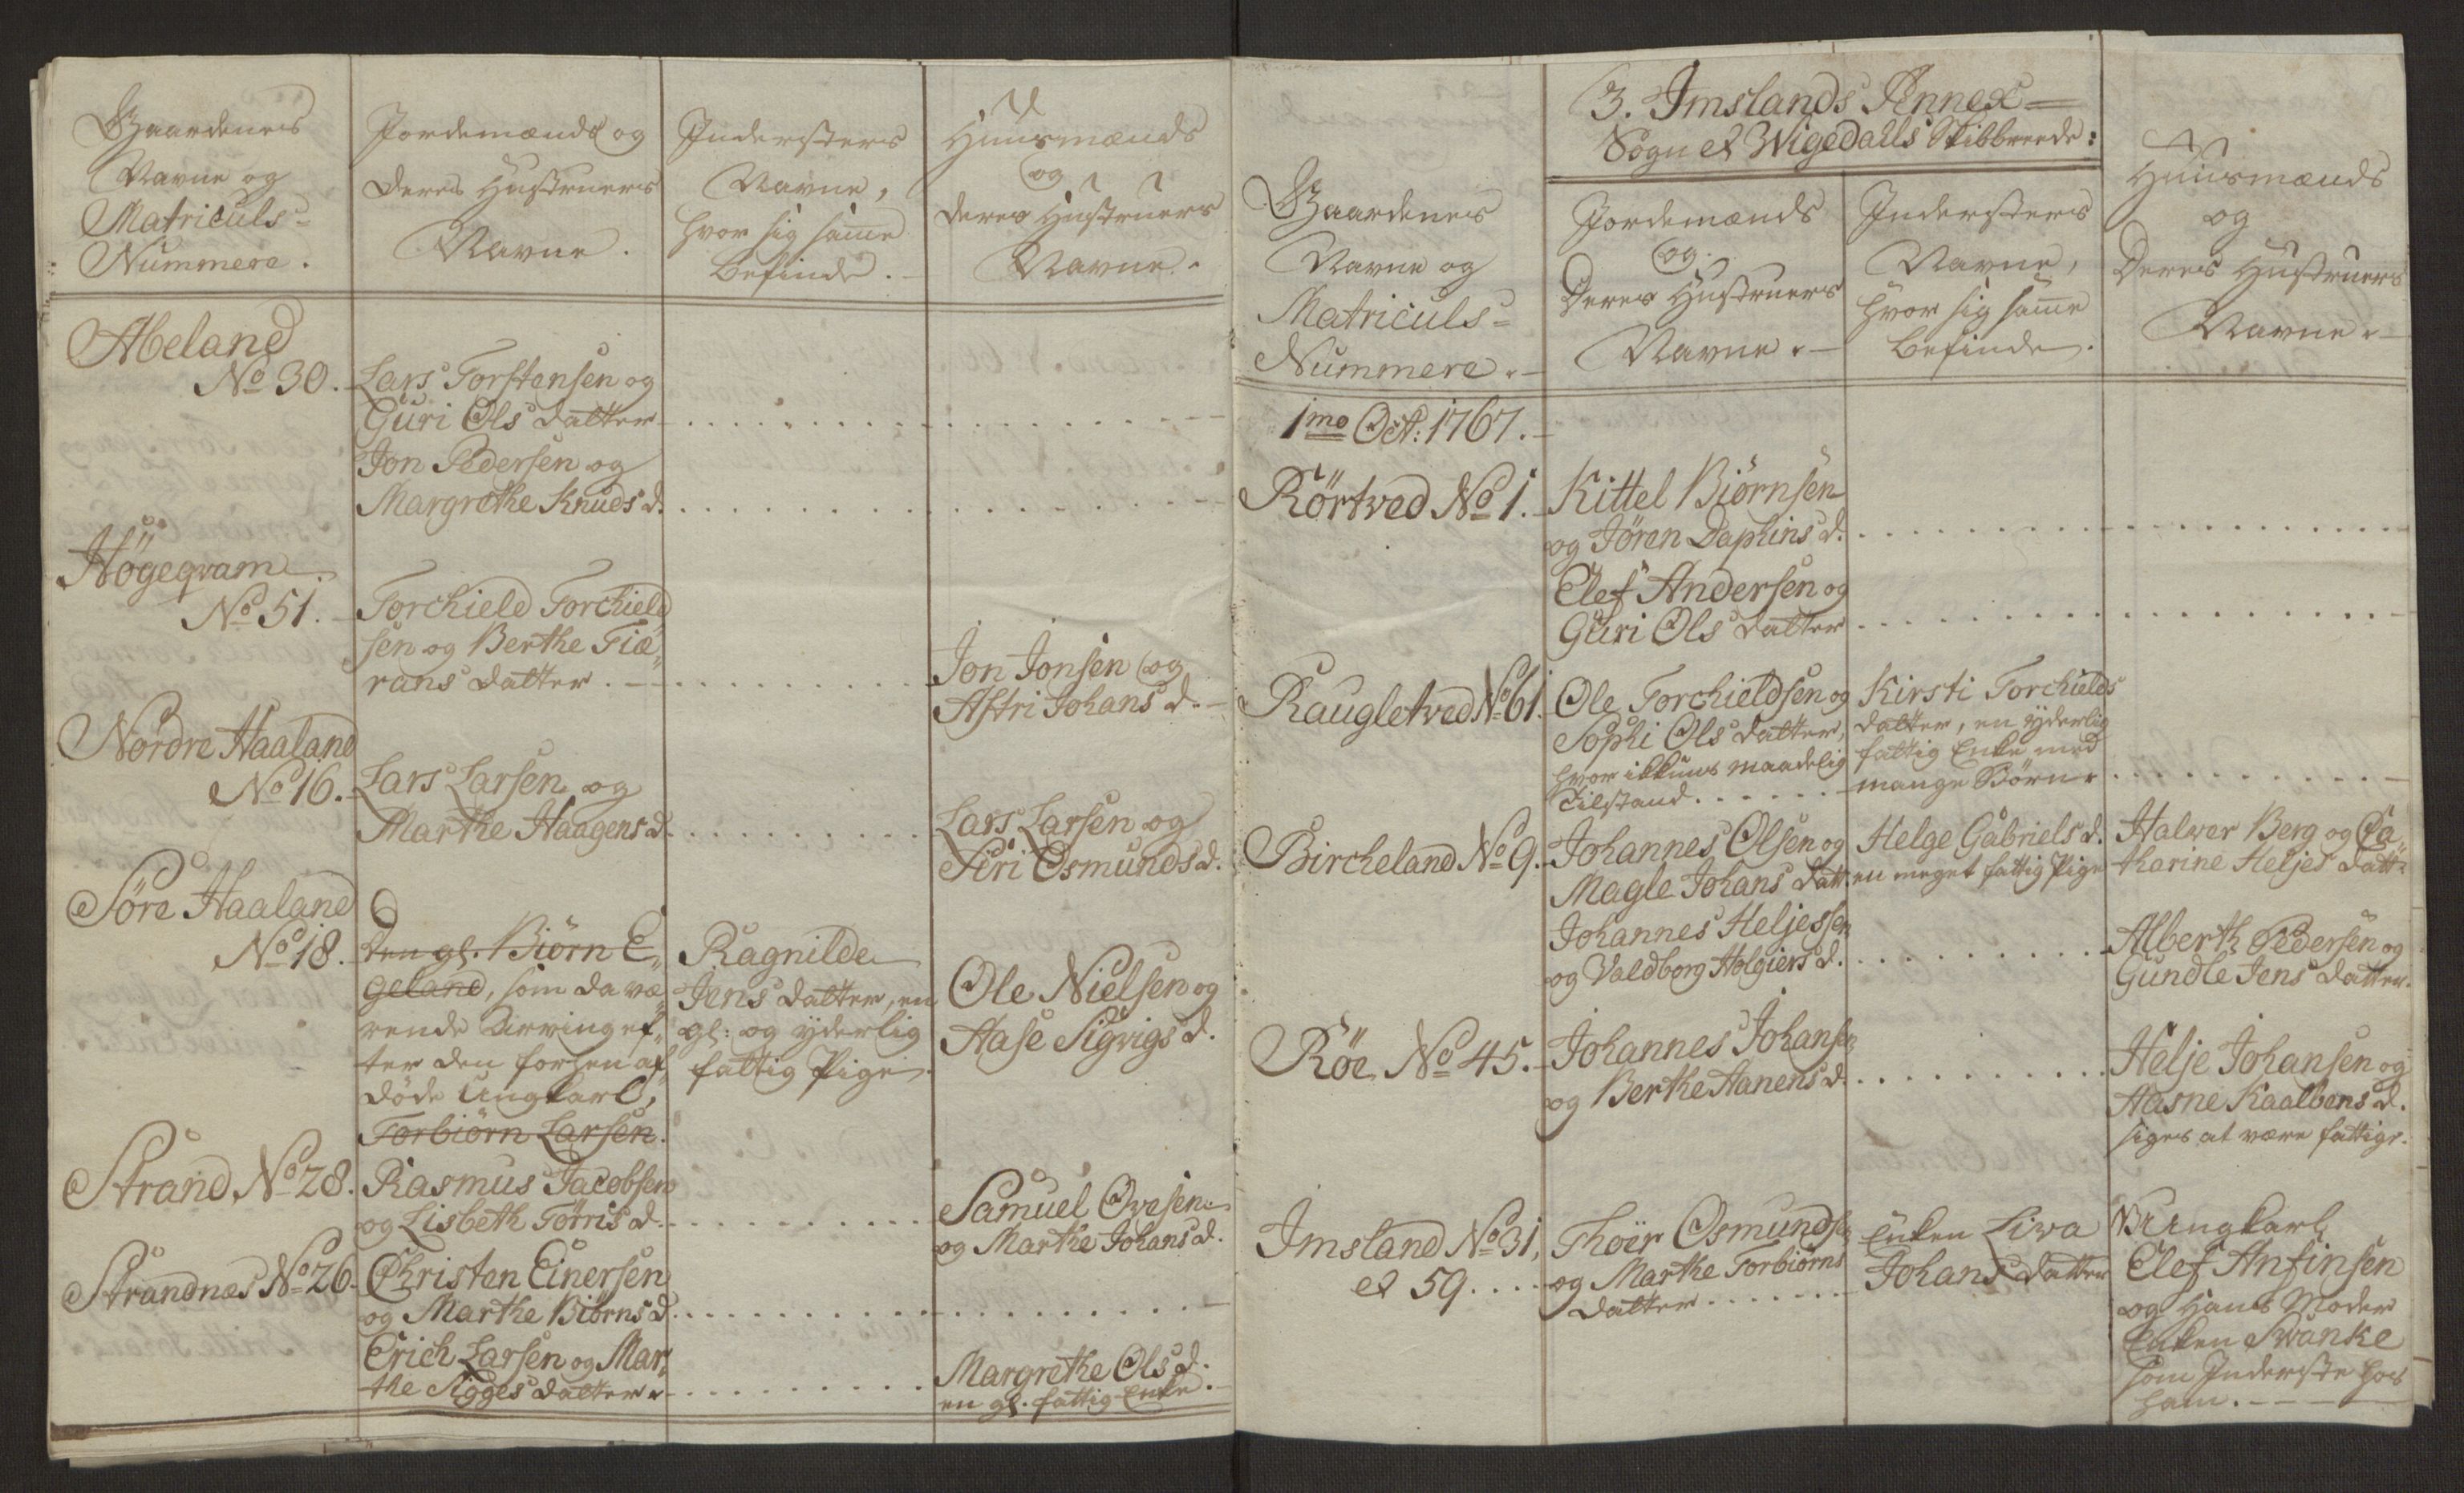 Gaardenes
Navne og
Matriculs-
Nummere.
Jordemænds og
deres Hustruers
Navne.
Indersters
Navne,
hvor sig same
befinde.
Huusmænds
og
deres Hustruers
Navne.
Abeland
No 30.
Lars Torstensen og
Guri Ols datter
Jon Pedersen og
Margrethe Knuds d.
Högeqvam
No 51.
Torchield Torchield
sen og Berthe Fiæ„
rans datter.
Jon Jonsen og
Astri Johans d.
Nordre Haaland
No 16.
Lars Larsen og
Marthe Haagens d.
Lars Larsen og
Siri Osmunds d.
Søre Haaland
No 18.
den gl. Biørn E„
geland, som da væ„
rende Arving ef„
ter den forhen af„
døde Ungkarl,
Torbiørn Larsen.
Ragnilde
Jens datter, en
gl: og yderlig
fattig Pige.
Ole Nielsen og
Aase Sigvigs d.
Strand No 28.
Rasmus Jacobsen
og Lisbeth Tørris d.
Samuel Ovesen
og Marthe Johans d.
Strandnæs No 26.
Christen Einersen
og Marthe Biørns d.
Erich Larsen og Mar„
the Sigges datter
Margrethe Ols d.
en gl. fattig Enke.
3. Imslands Annex-
Sogn et Wigedalls Skibbreede:
Gaardenes
Navne og
Matriculs-
Nummere.
Jordemænds
og
Deres Hustruers
Navne.
Indersters
Navne,
hvor sig same
befinde.
Huusmænds
og
Deres Hustruers
Navne.
1mo Oct: 1767.
Rörtved No 1.
Kittel Biørnsen
og Jören Daphins d.
Elef Andersen og
Guri Ols datter
Raugletved No 61.
Ole Torchieldsen og
Sophi Ols datter,
hvor ikkuns maadelig
tilstand.
Kirsti Torchields
datter, en yderlig
fattig Enke med
mange Børn.
Bircheland No 9.
Johannes Olsen og
Magle Johans datt.
Helge Gabriels d.
en meget fattig Pige
Halvor Berg og Ca„
tharine Heljes datt.
Johannes Heljessen
og Valdborg Holgiers d.
Alberth Pedersen og
Gundle Jens datter.
Röe No 45.
Johannes Johansen
og Berthe Aanens d.
Helje Johansen og
Aasne Kaalbens d.
siges at være fattige.
Imsland No 31,
et 59.
Thoer Osmundsen
og Marthe Torbiørns
datter
Enken Liva
Johans datter
NB Ungkarl
Elef Anfinsen
og Hans Moder
Enken Svanke
som Inderste hos
ham.